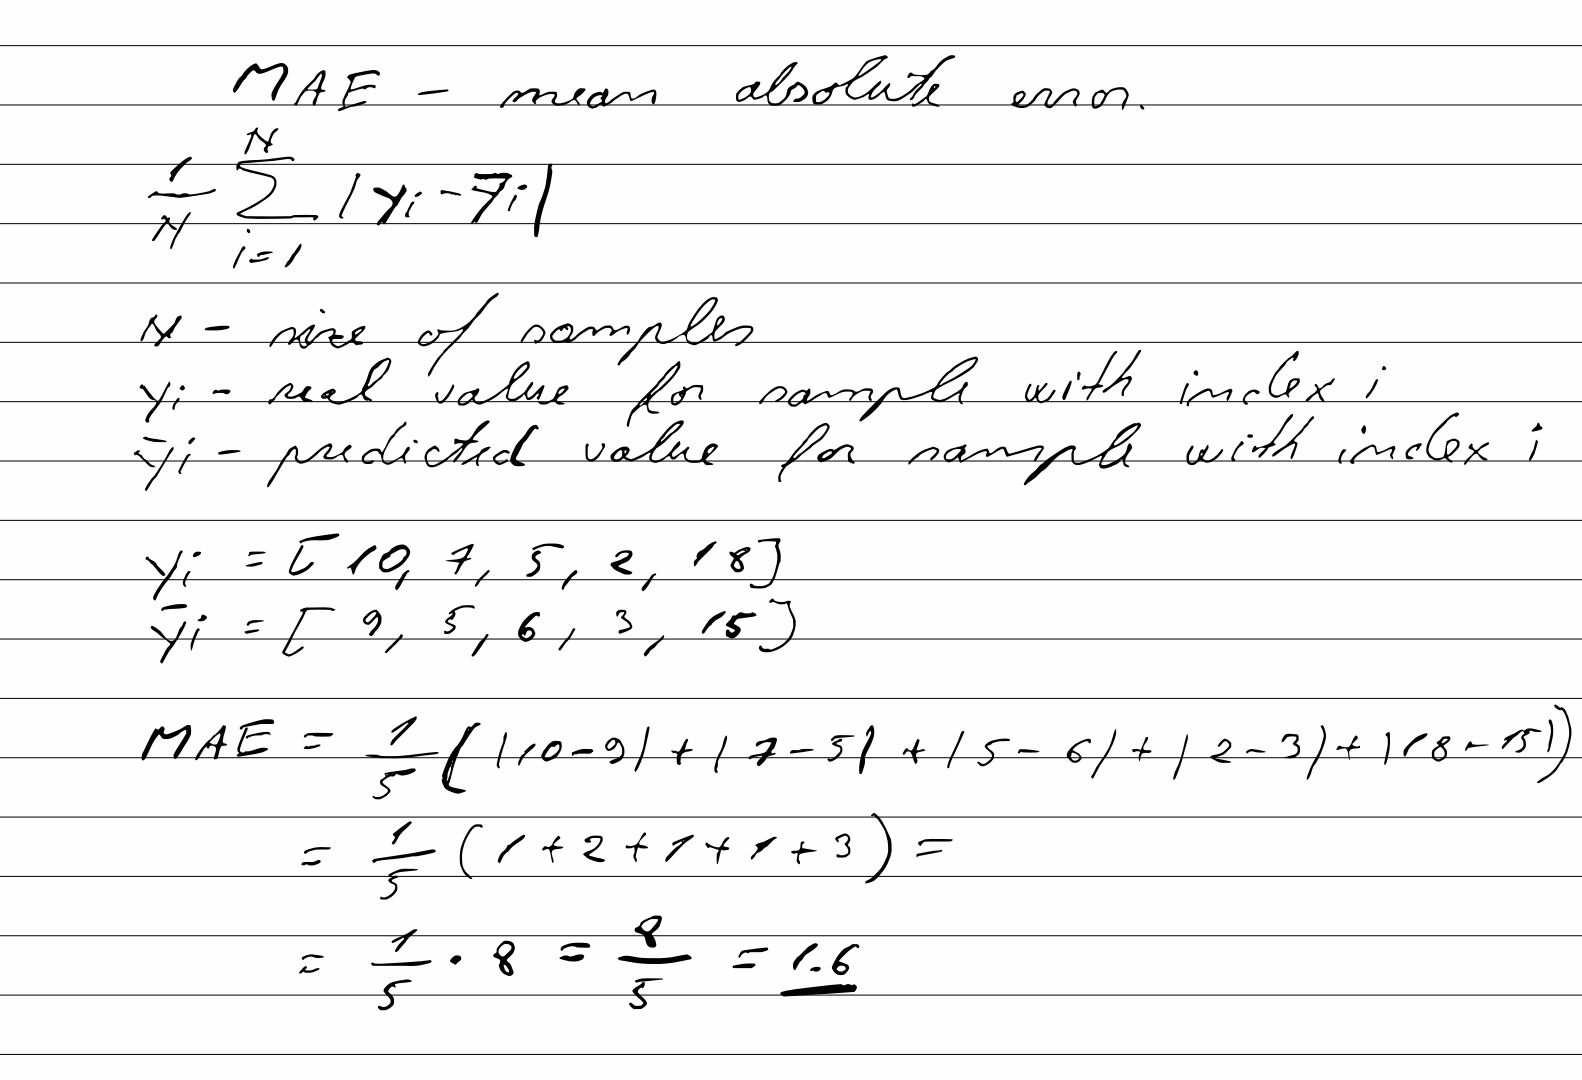 MAE - mean absolute error.
1/N ∑_{i=1}^{N} |yi - ȳi|
N - size of samples
yi - real value for sample with index i
ȳi - predicted value for sample with index i
yi = [10, 7, 5, 2, 18]
ȳi = [9, 5, 6, 3, 15]
MAE = 1/5 (|10-9| + |7-5| + |5-6| + |2-3| + |18-15|)
= 1/5 (1+2+1+1+3) =
= 1/5 · 8 = 8/5 = 1.6